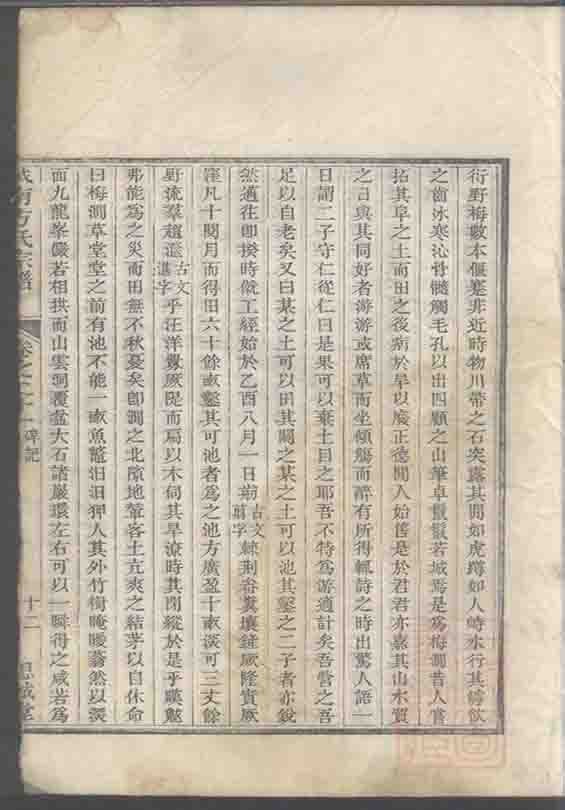 衍野梅數本偃蹇非近時物川帶之石突露其間如虎蹲如人峙水行其罅飲
之齒冰寒沁骨髓觸毛孔以出四顧之山筆卓鬟鬟若城焉是爲梅澗昔人嘗
招其阜之土而田之後病於旱以廢正德間入始售是於君君亦嘉其山水買
之日與其同好者游游或席草而坐傾觴而醉有所得輒詩之時出驚人語一
日謂二子守仁從仁曰是果可以棄土目之耶吾不特爲游適計矣吾營之吾
足以自老矣又曰某之土可以田其闢之某之土可以池其鑿之二子者亦銳
然適往卽揆時僦工經始於乙酉八月一日前古文翦字棘荆畚糞壤鍤厥隆實厥
窪凡十閱月而得田六十餘畝鑿其可池者爲之池方廣盈十畝淡可三丈餘
野流羣趨滙古文進字乎汪洋爰厥隄而扃以木伺其旱潦時其閉縱於是乎暵魃
弗能爲之災而田無不秋憂矣卽澗之北隙地輦客土亢爽之結茅以自休命
曰梅澗草堂堂之前有池不能一畝魚鼈汩汩狎人其外竹樹晻曖蓊然以深
面九龍峯儼若相拱而山雲洞覆盒大石諸巖環左右可以一瞬得之咸若爲
方氏宗譜
卷之
碑記
十二
思誠堂